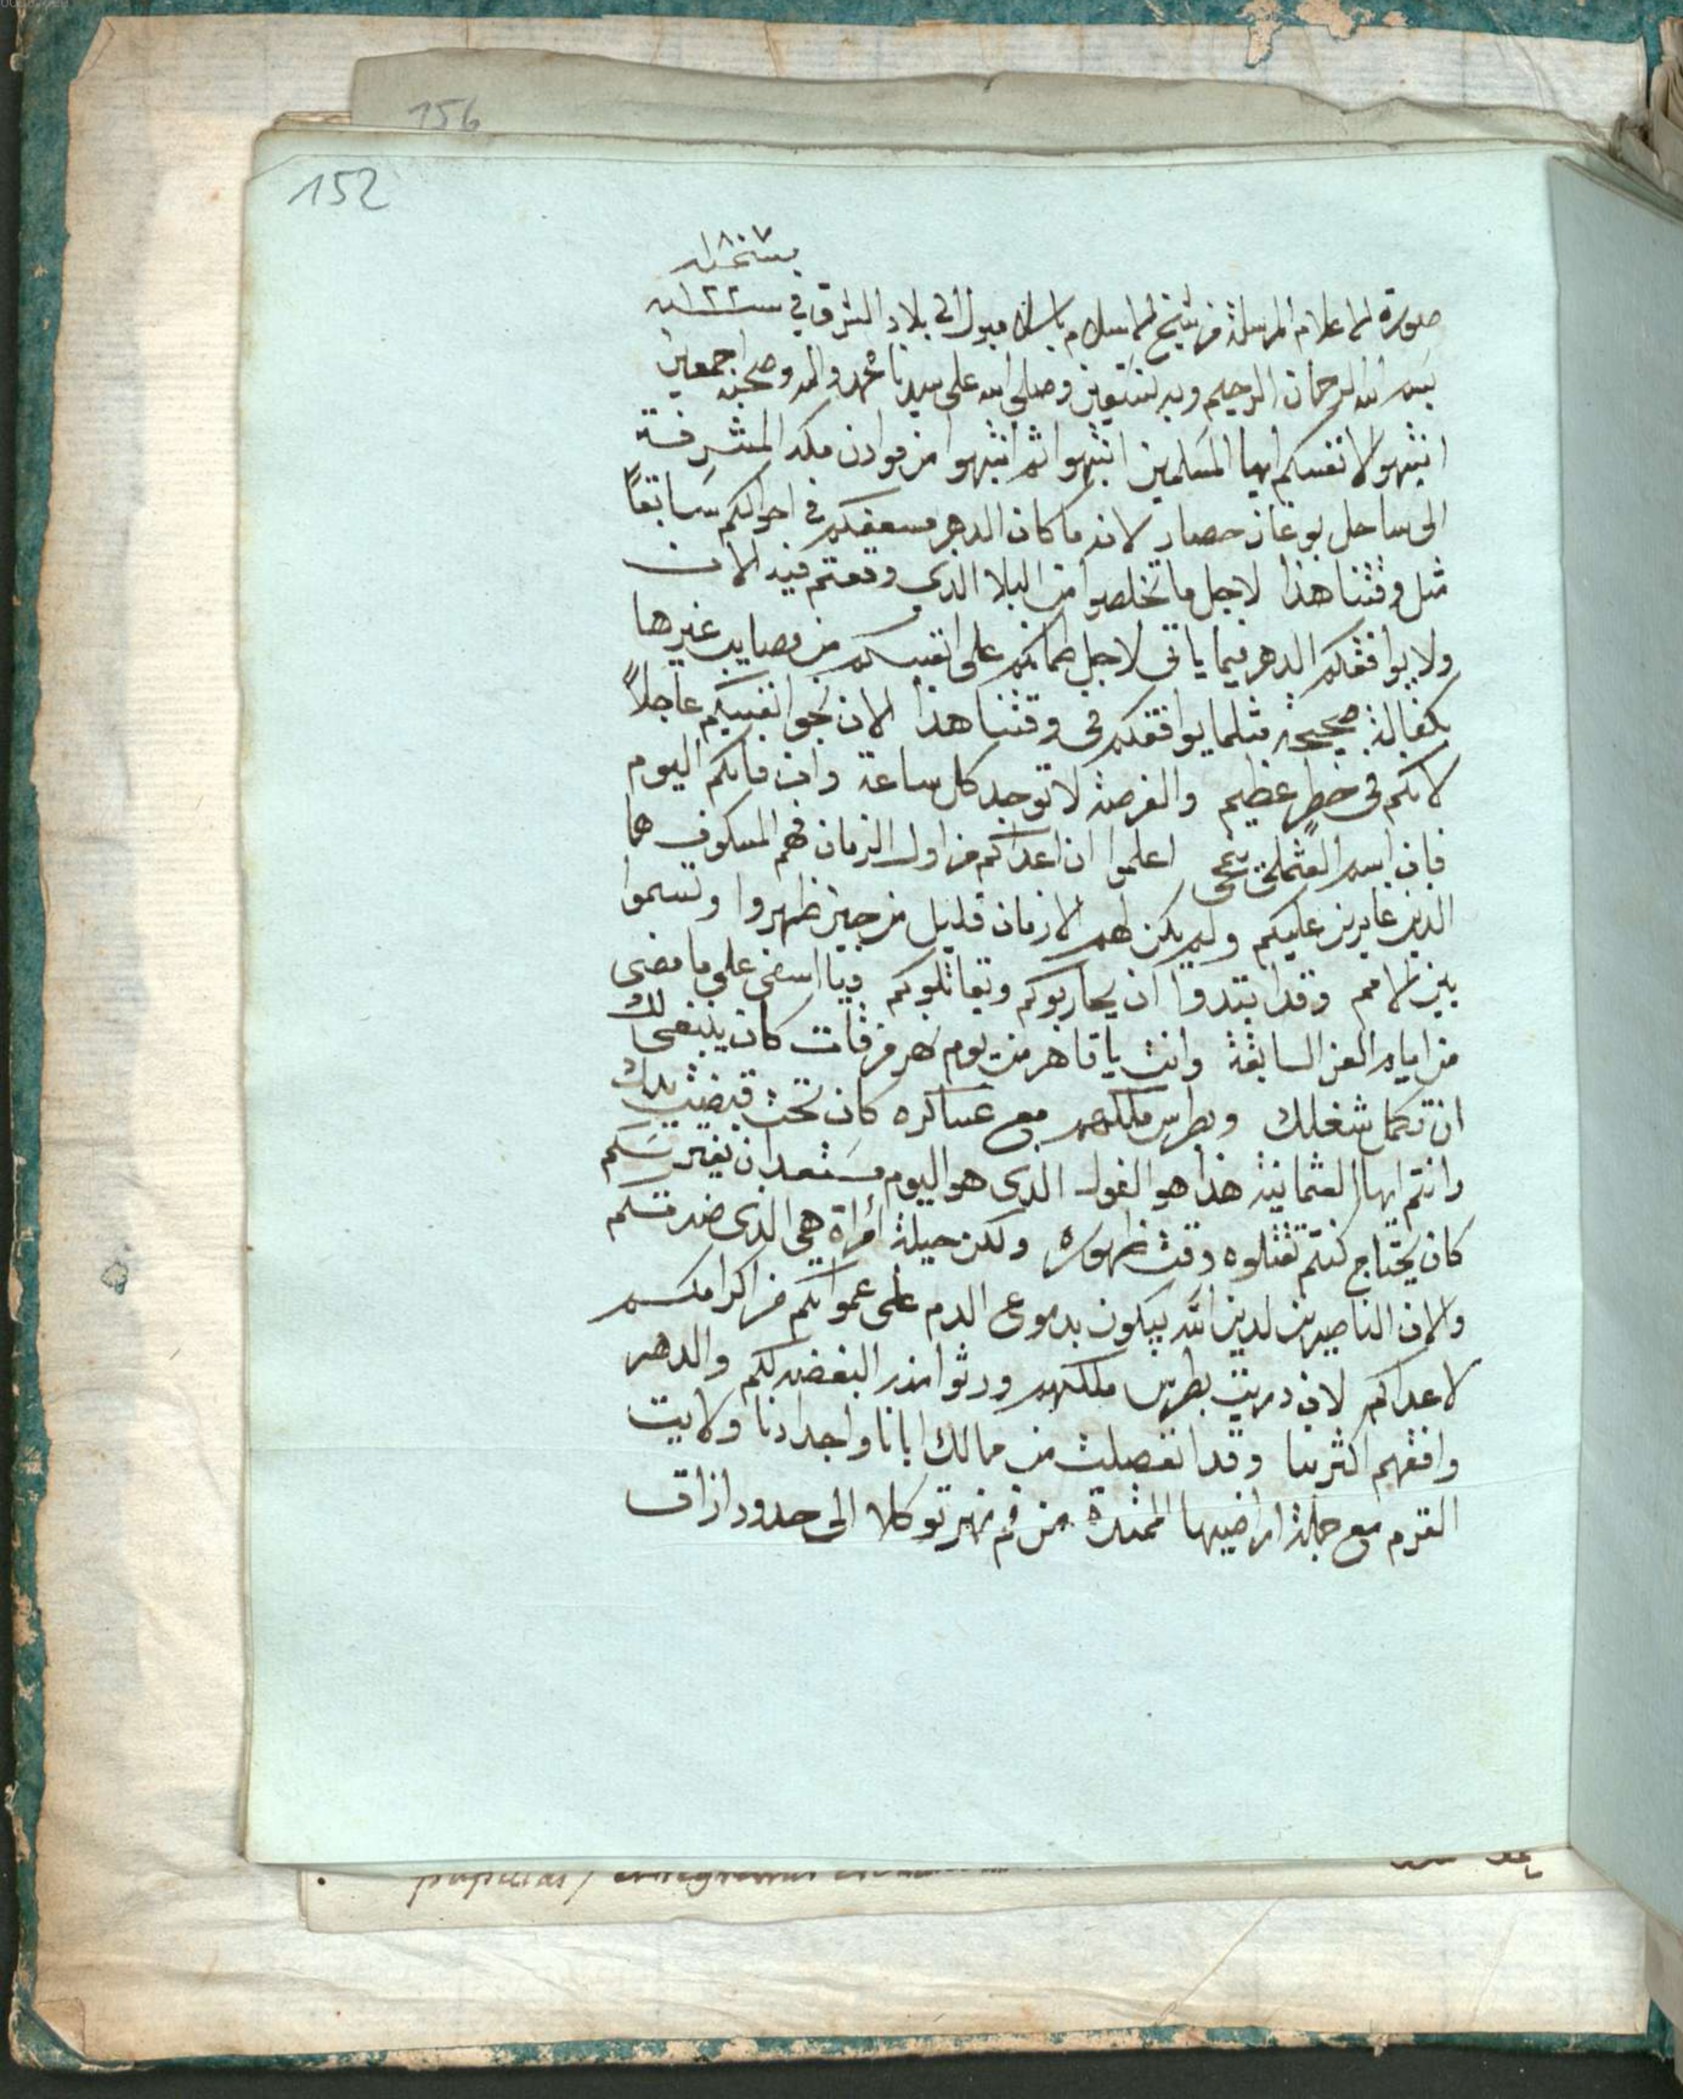 156
152
سنة ١٨٠٧
صورة الاعلام المرسلة من شيخ الاسلام باسلامبول الى بلاد الشرق في سنة ١٢٢٢
بسم الله الرحمان الرحيم وبه نستعين وصلى الله على سيدنا محمد واله وصحبه اجمعين
انتبهو لانفسكم ايها المسلمين انتبهوا ثم انتبهوا من موادن مكه المشرفة
الى ساحل بوغاز حصار لانه ما كان الدهر مسعفكم في احوالكم سابقاً
مثل وقتنا هذا لاجل ما تخلصوا من البلا الذى وقعتم فيه الان
ولا يوافقكم الدهر فيما ياتى لاجل طمانكم على انفسكم من مصايب غيرها
بكفالة صحيحة مثلما يوافقكم فى وقتنا هذا الان نجوا انفسكم عاجلاً
لانكم فى خطرٍ عظيم والفرصة لا توجد كل ساعة وان فاتكم اليوم
فان اسم العثملى ينمحى اعلموا ان اعداكم من اول الزمان فهم المسكوف هما
الذين غايرين عليكم ولم يكن لهم الا زمان قليل من حين ظهروا وتسموا
بين الامم وقد ابتدوا ان يحاربوكم ويقاتلوكم ويا اسفى على ما مضى
من ايام العز السابقة وانت يا قاهر من يوم نهر فرقات كان ينبغى لك
ان تكمل شغلك وبطرس ملكهم مع عساكره كان تحت قبضت يدك
وانتم ايها العثمانية هذا هو الغول الذى هو اليوم مستعد ان يفترسكم
كان يحتاج كنتم تقتلوه وقت ظهوره ولكن حيلة امراة هي الذى ضرتكم
والان الناصرين لدين الله يبكون بدموع الدم على عموانكم من اكرامكم
لاعداكم لان دريت بطرس ملكهم ورثوا منه البغضه لكم والدهر
وافقهم اكثر منا وقد انفصلت من ممالك ابانا واجدادنا ولايت
القرم مع جملة اراضيها الممتدة من فم نهر توكلا الى حدود ازاق